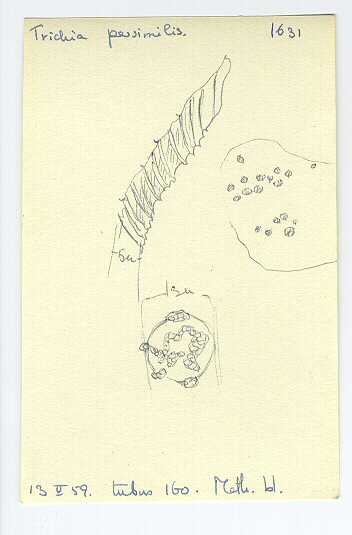 Trichia persimilis. 1631
5u
13u
13 II 59. tubus 160. Meth. bl.